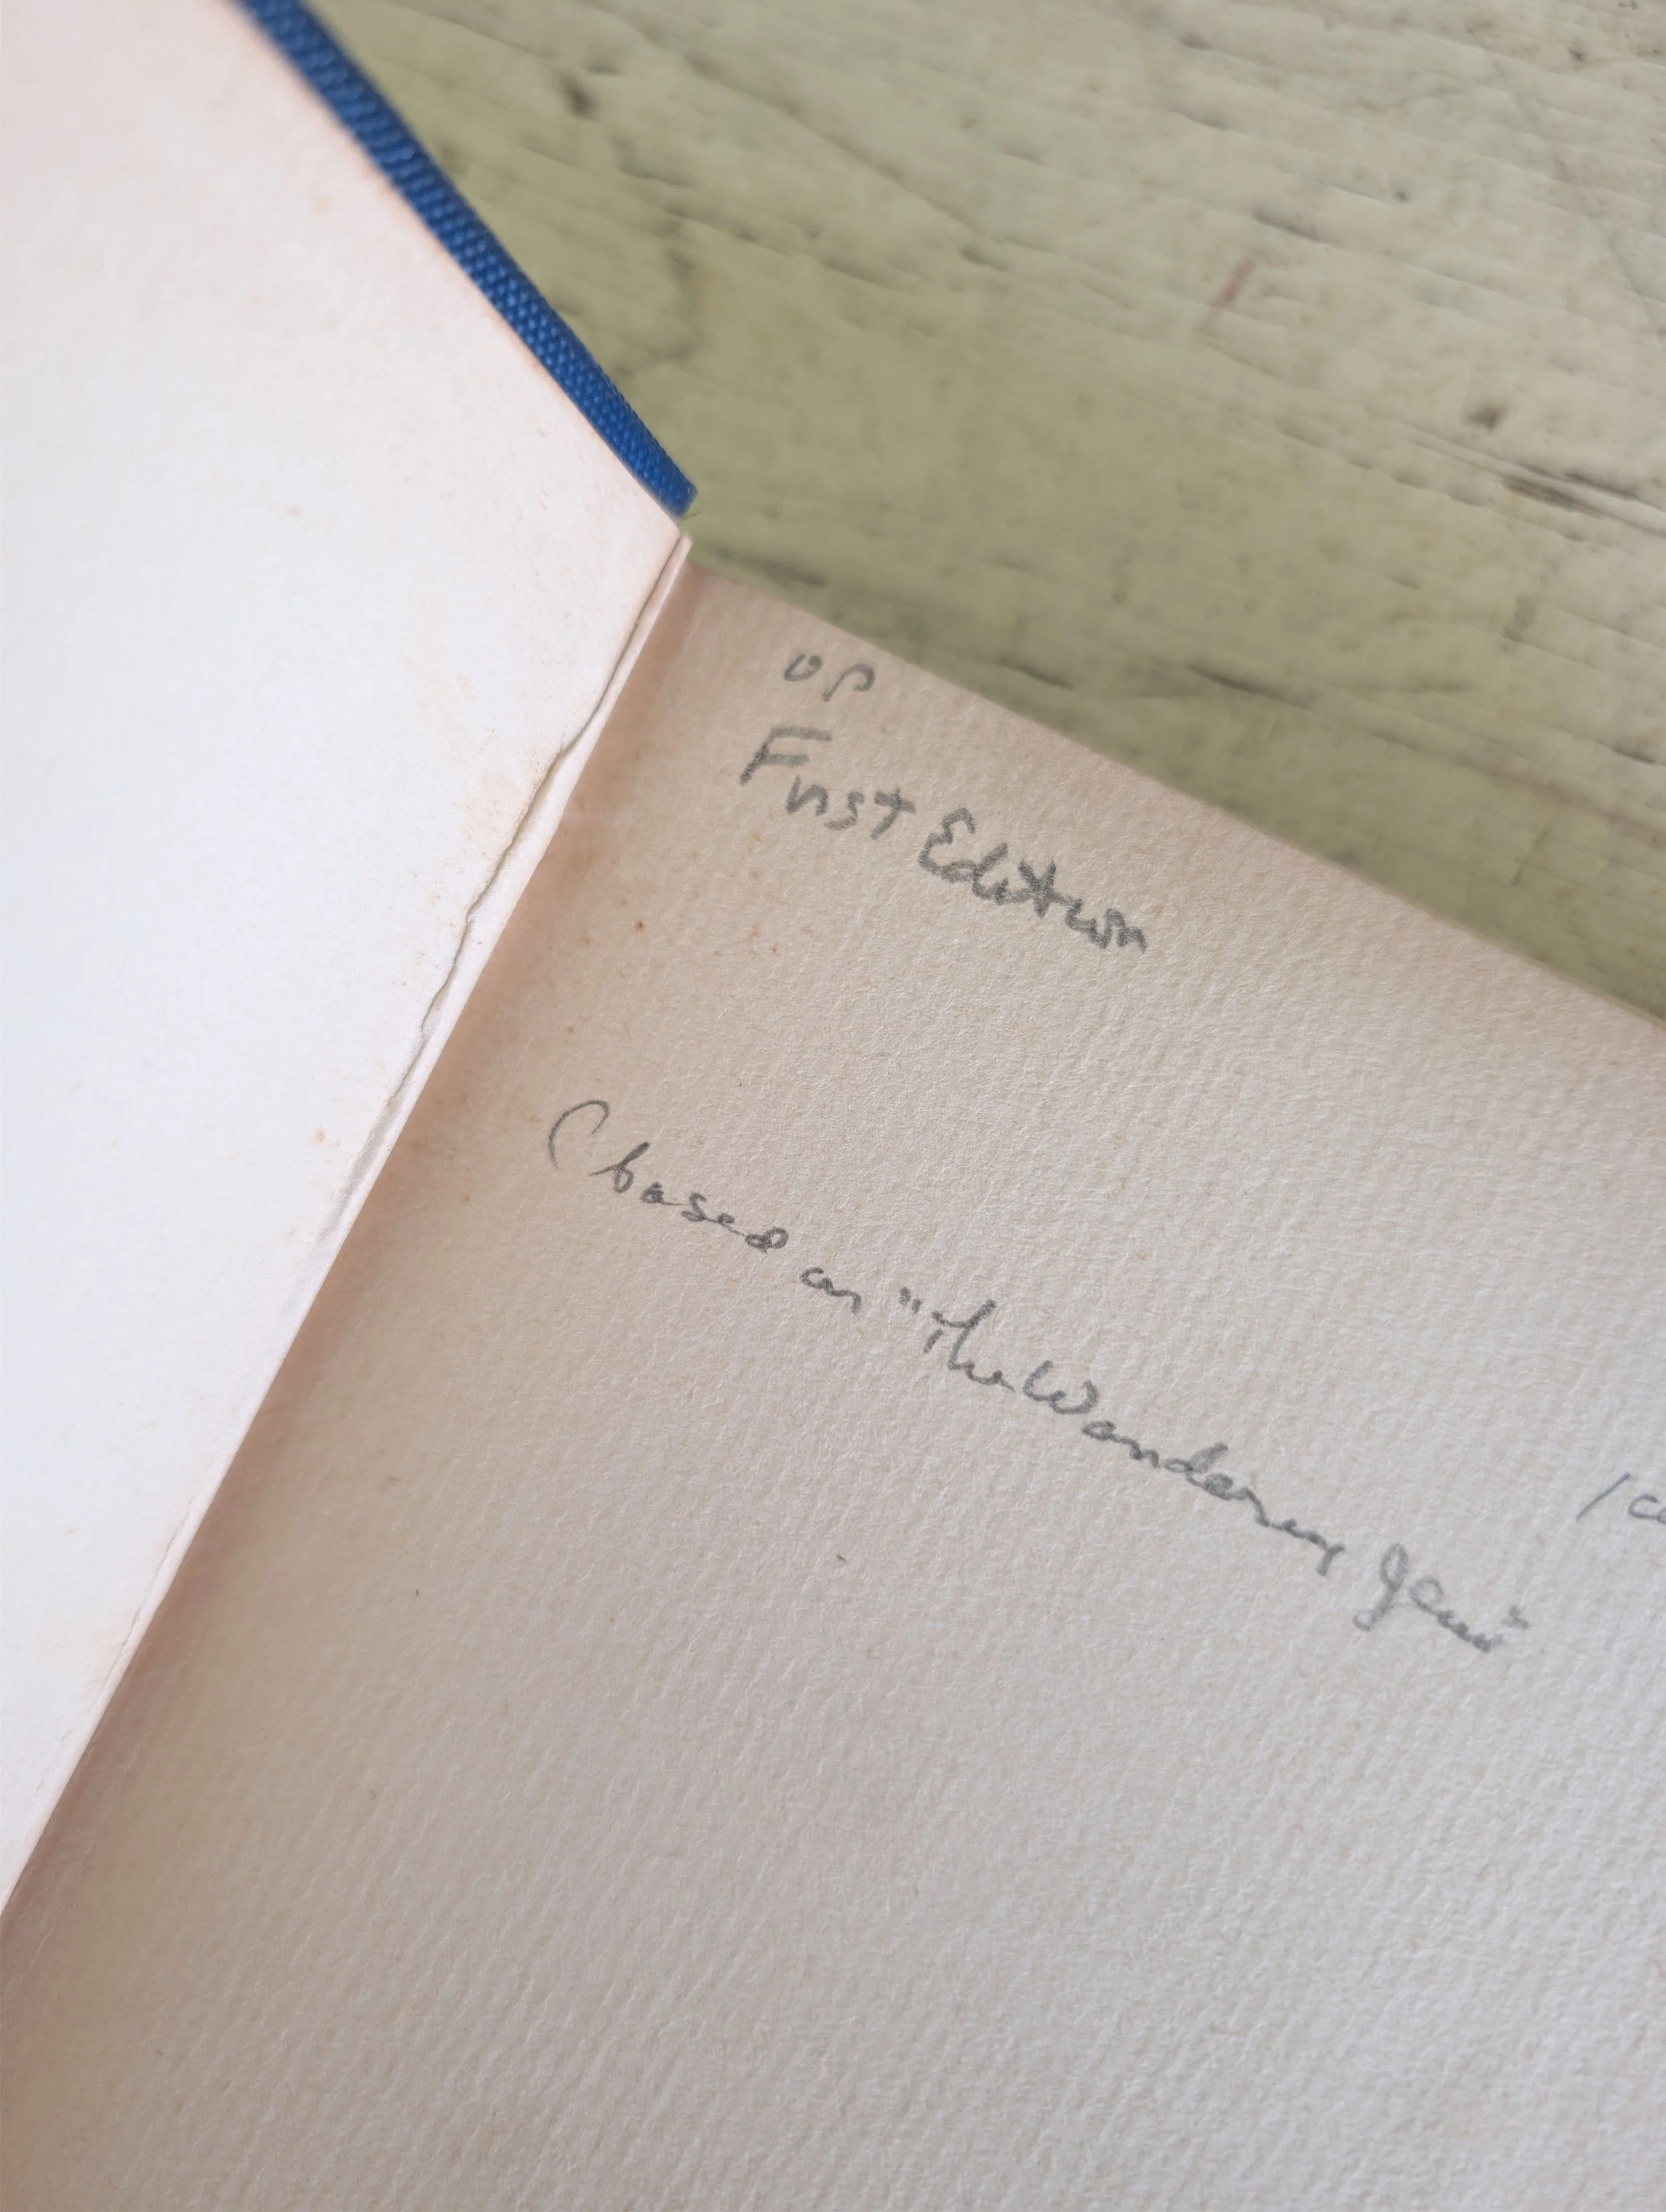 OP
First Edition
(based on "The Wandering Jew"